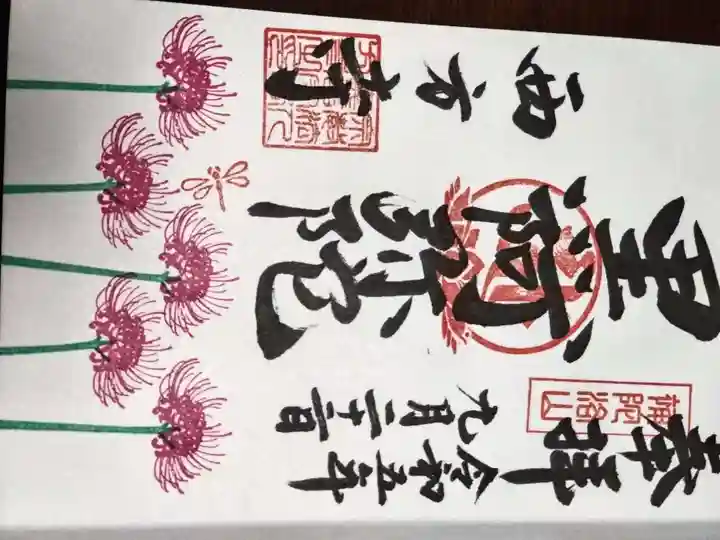 奉拝
令和五年
九月二十二日
補陀洛山
阿弥陀
西方寺